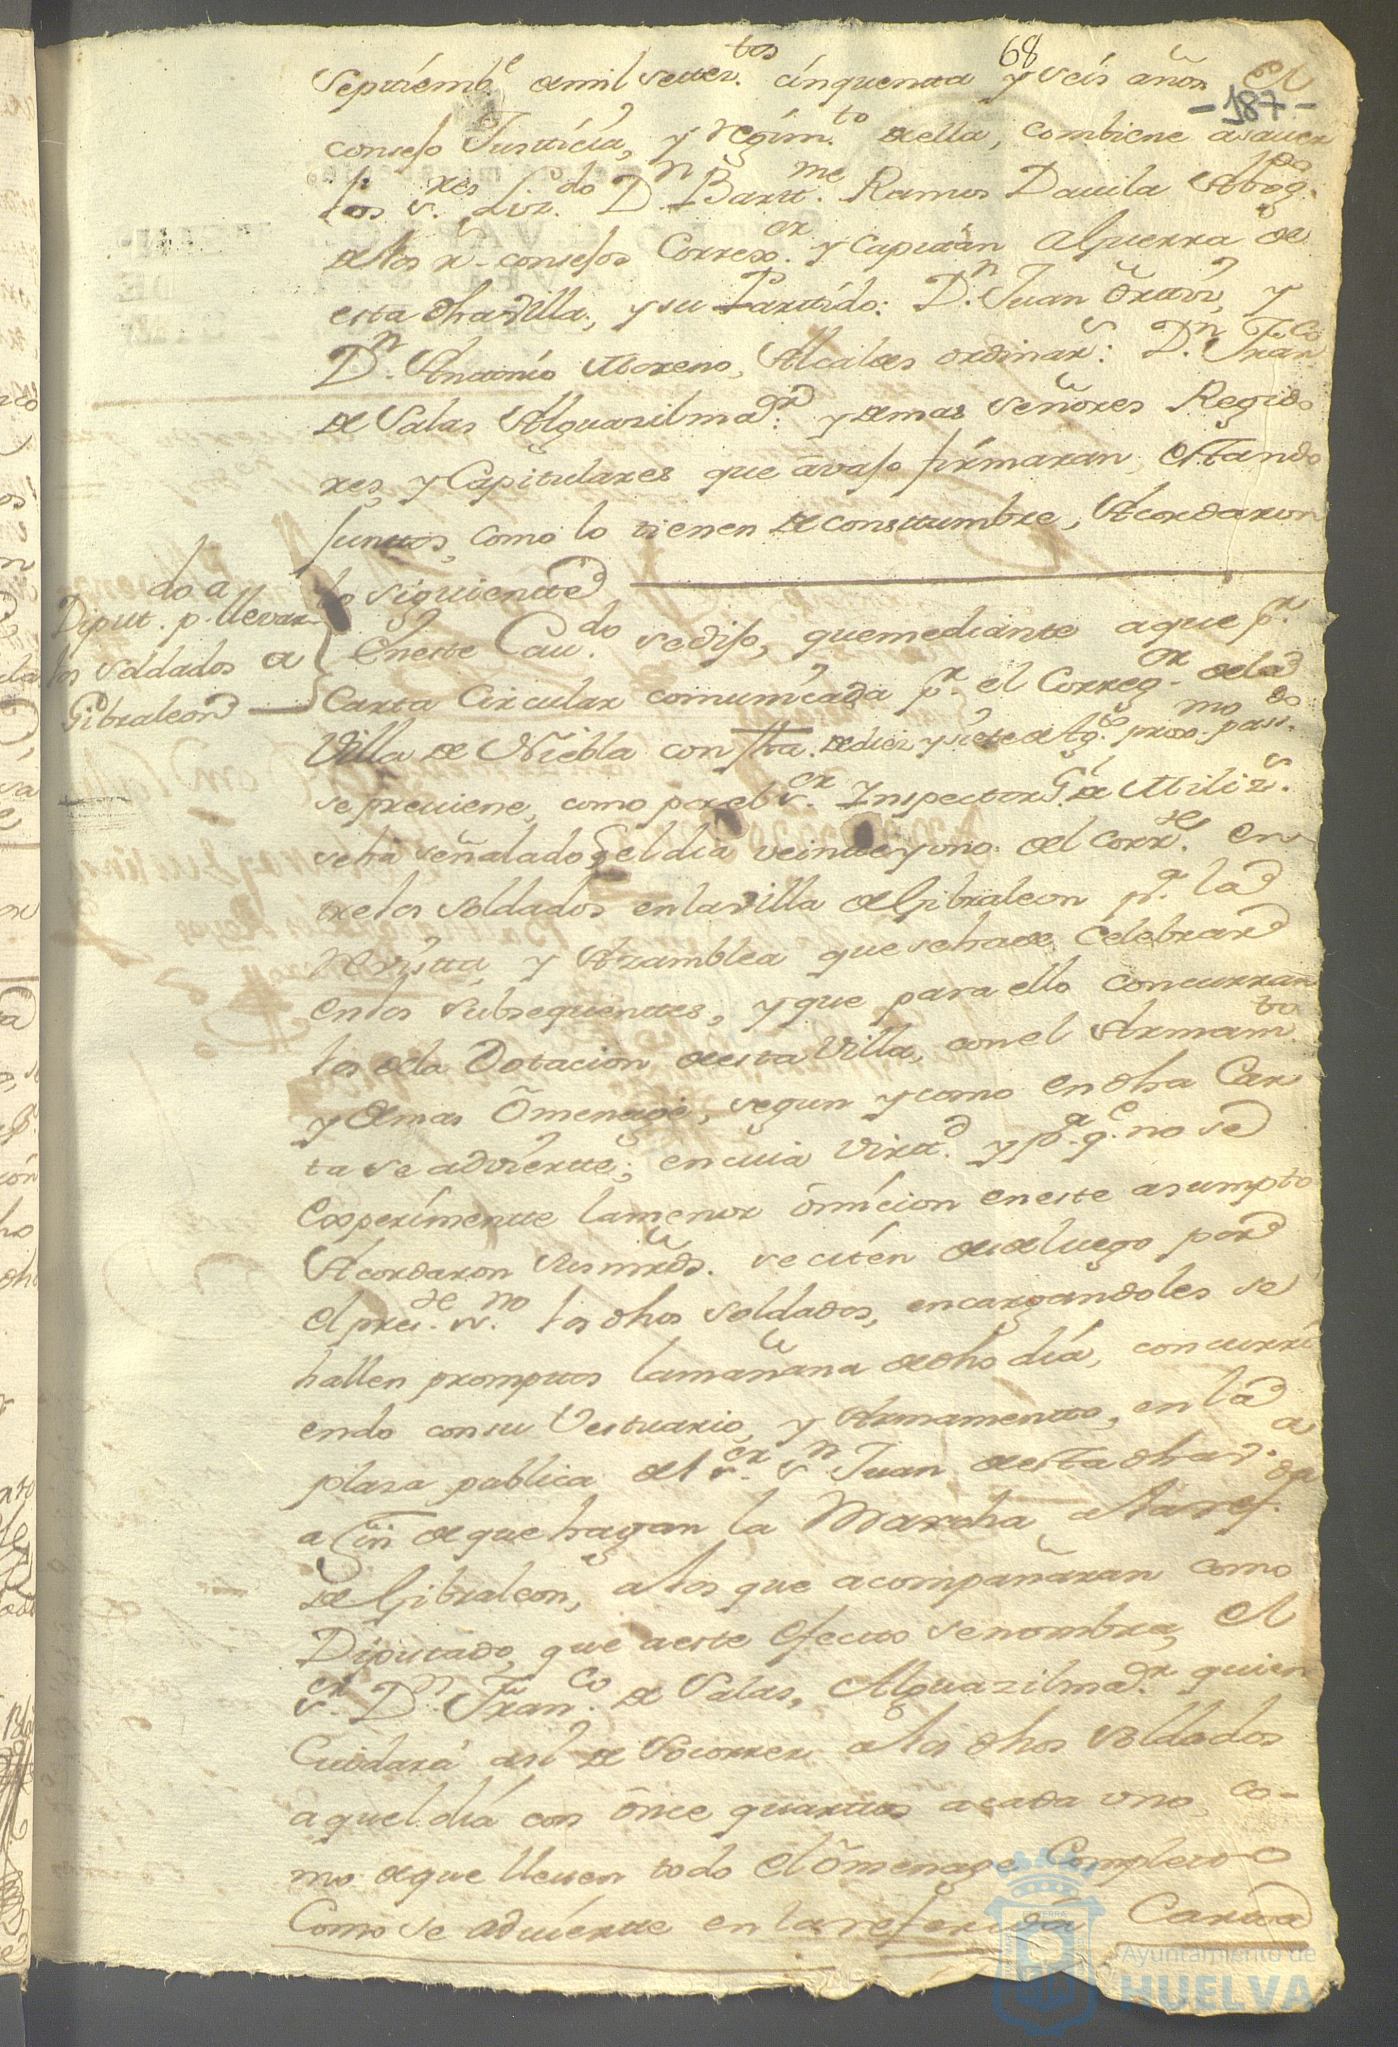 68
-187-
Septiemb.e de mil settez.tos cinquenta y seis años El
consejo Justicia, y regim.to de ella, combiene a saver
los S.res Liz.do D.n Bartt.me Ramos Davila Abog.do
de los R.s consejos Correx.or y Capitan a Guerra de
esta dha villa, y su Partido: D.n Juan
D.n Antonio Moreno, Alcaldes ordinar.s: D.n Fran.co
de Salas Alguazilma.or y demas Señores Regido
res, y Capitulares que avajo firmaran, estando
juntos, como lo tienen de consttumbre, Acordaron
lo siguiente
do a
Diput. p. llevar
los soldados a
Gibraleon
En este Cau.do se dijo, que mediante a que p.r
Carta Circular comunicada p.r el Correg.or de la
Villa de Niebla con fha. de diez y siete de Ag.to prox.mo pas.do
se previene, como por el S.or Inspector G.l de Miliz.s
se ha señalado el dia veinte y uno del corr.te en
tre los soldados en la villa de Gibraleon p.a la
Revista y Azamblea que se ha de Celebrar
en los subsequentes, y que para ello concurran
los de la Dotacion de esta Villa, con el Armam.to
y demas Omenage, segun y como en dha Car
ta se advierte; en cuia virtt.d y p.a q.e no se
experimente la menor omicion en este asumpto
Acordaron sus mrds. se citen desde luego por
el pres.te ss.no los dhos soldados, encargandoles se
hallen promptos la mañana de dho dia, concurri
endo con su Vestuario, y Armamento, en la
plaza publica de el S.or S.n Juan de esta dha v.a
a fin de que hagan la Marcha a la ref.da
de Gibraleon, a los que acompañaran como
Diputado, que a este efecto se nombra, el
S.or D.n Fran.co de Salas, Alguazilma.or quien
Cuidara asi de Socorrer a los dhos soldados
aquel dia con once quarttos a cada uno, co-
mo de que lleven todo el omenage Completo
Como se advierte en la referida Carta
Ayuntamiento de
HUELVA